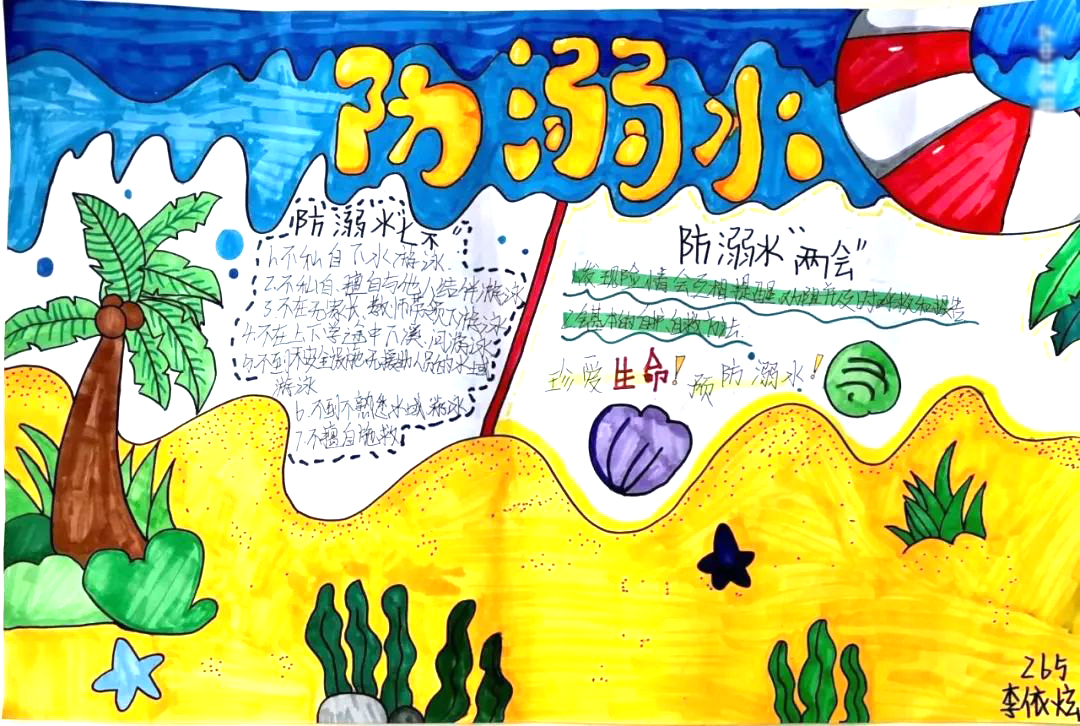 防溺水
防溺水七不"
1.不私自下水游泳.
2.不私自、擅自与他人结伴游泳
3.不在无家长、教师带领下游泳
4.不在上下学途中下溪、河游泳
5.不到不安全设施无援助人员的水域
游泳
6.不到不熟悉水域游泳
7.不擅自施救
防溺水"两会"
1发现险情会互相提醒、劝阻并及时呼救和报告
2会基本的自护自救方法.
珍爱生命!预防溺水!
265
李依炫